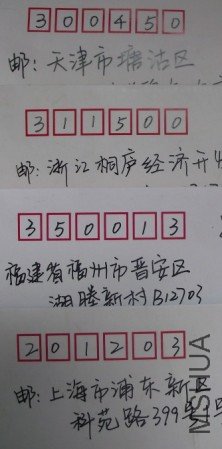 300450
邮：天津市塘沽区
311500
邮：浙江桐庐经济开
350013
福建省福州市晋安区
湖塍新村B12703
201203
邮：上海市浦东新区
科苑路399号
MSHUA